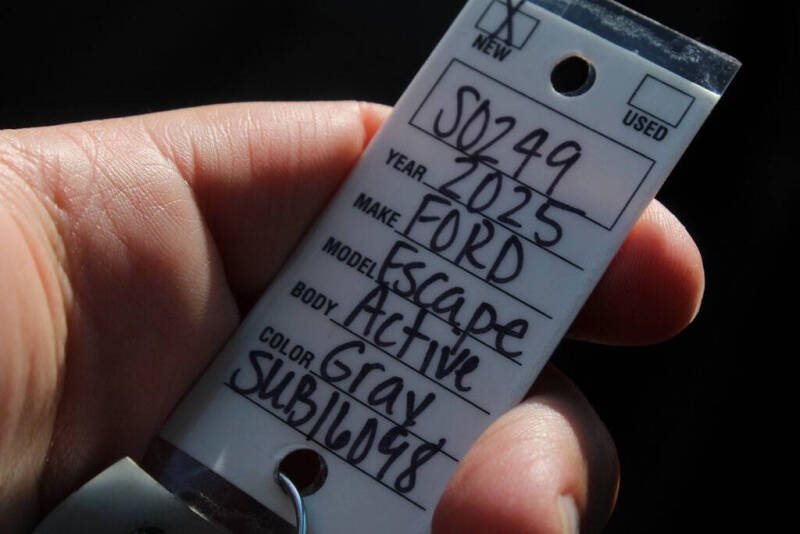 X
NEW
USED
S0249
YEAR 2025
MAKE FORD
MODEL Escape
BODY Active
COLOR Gray
SUB16098